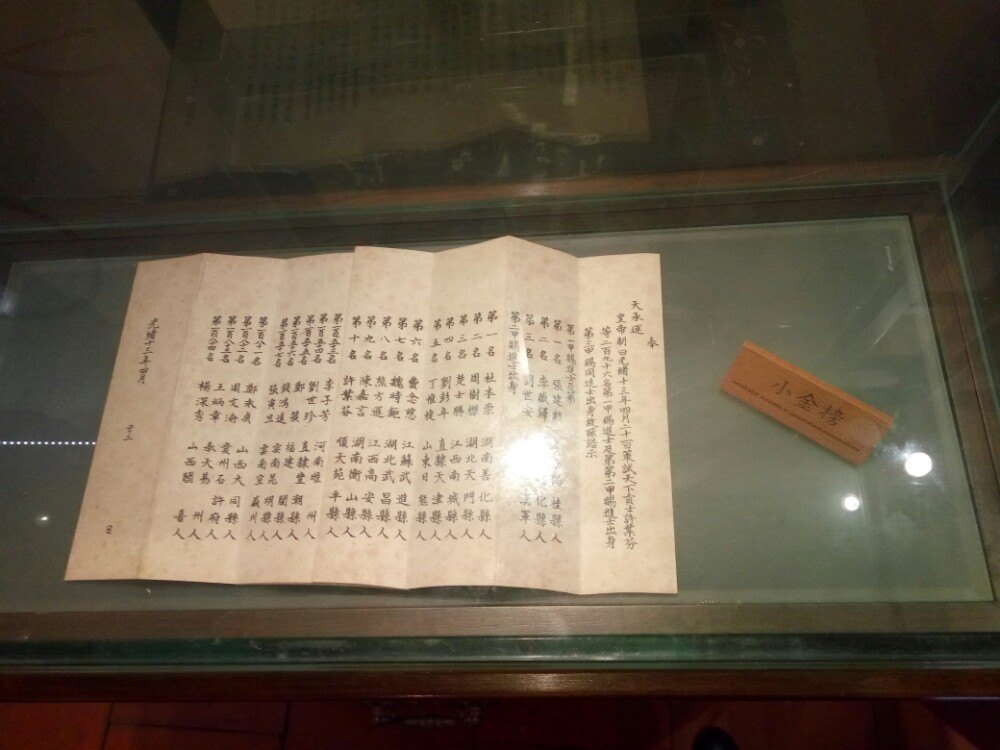 奉
天承運
皇帝制曰光緒十三年四月二十一日策試天下貢士許葉芬
等二百九十六名第一甲賜進士及第第二甲賜進士出身
第三甲賜同進士出身故茲誥示
第一甲賜進士及第
第一名 張建勳 桂縣人
第二名 李盛鐸 化縣人
第三名 劉世安 漢軍人
第二甲賜進士出身
第一名 杜本崇 湖南善化縣人
第二名 周樹模 湖北天門縣人
第三名 楚士 江西南城縣人
第四名 劉彭年 直隸天津縣人
第五名 丁惟禔 山東日照縣人
第六名 費念慈 江蘇武進縣人
第七名 魏時鉅 湖北武昌縣人
第八名 熊方燧 江西高安縣人
第九名 陳嘉言 湖南衡山縣人
第十名 許葉芬 順天宛平縣人
第一百五三名 李子芳 河南 州人
第一百五四名 劉世珍 直隸 人
第一百五五名 鄭 福建閩縣人
第一百五六名 錢鴻 雲南昆明縣人
第一百五七名 張寅旦 雲南 人
第一百八一名 鄭永貞 山西大同縣人
第一百八二名 周文 貴州石 人
第一百八三名 王炳章 人
第一百八四名 楊深秀 山西聞喜人
光緒十三年四月 日
小金榜